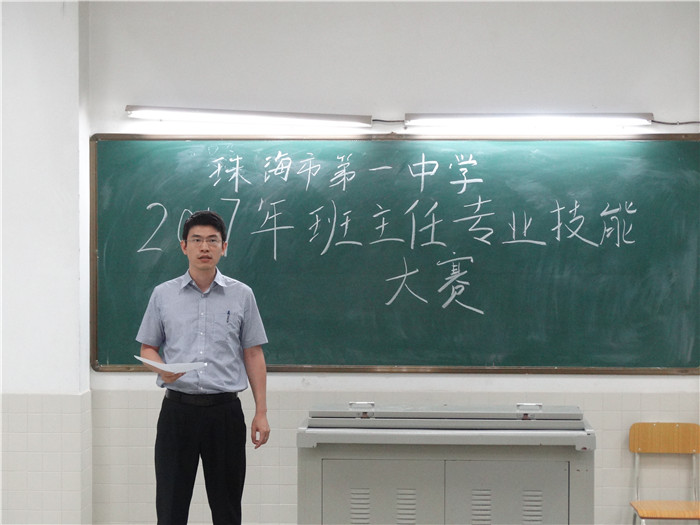 珠海市第一中学
2017年班主任专业技能
大赛